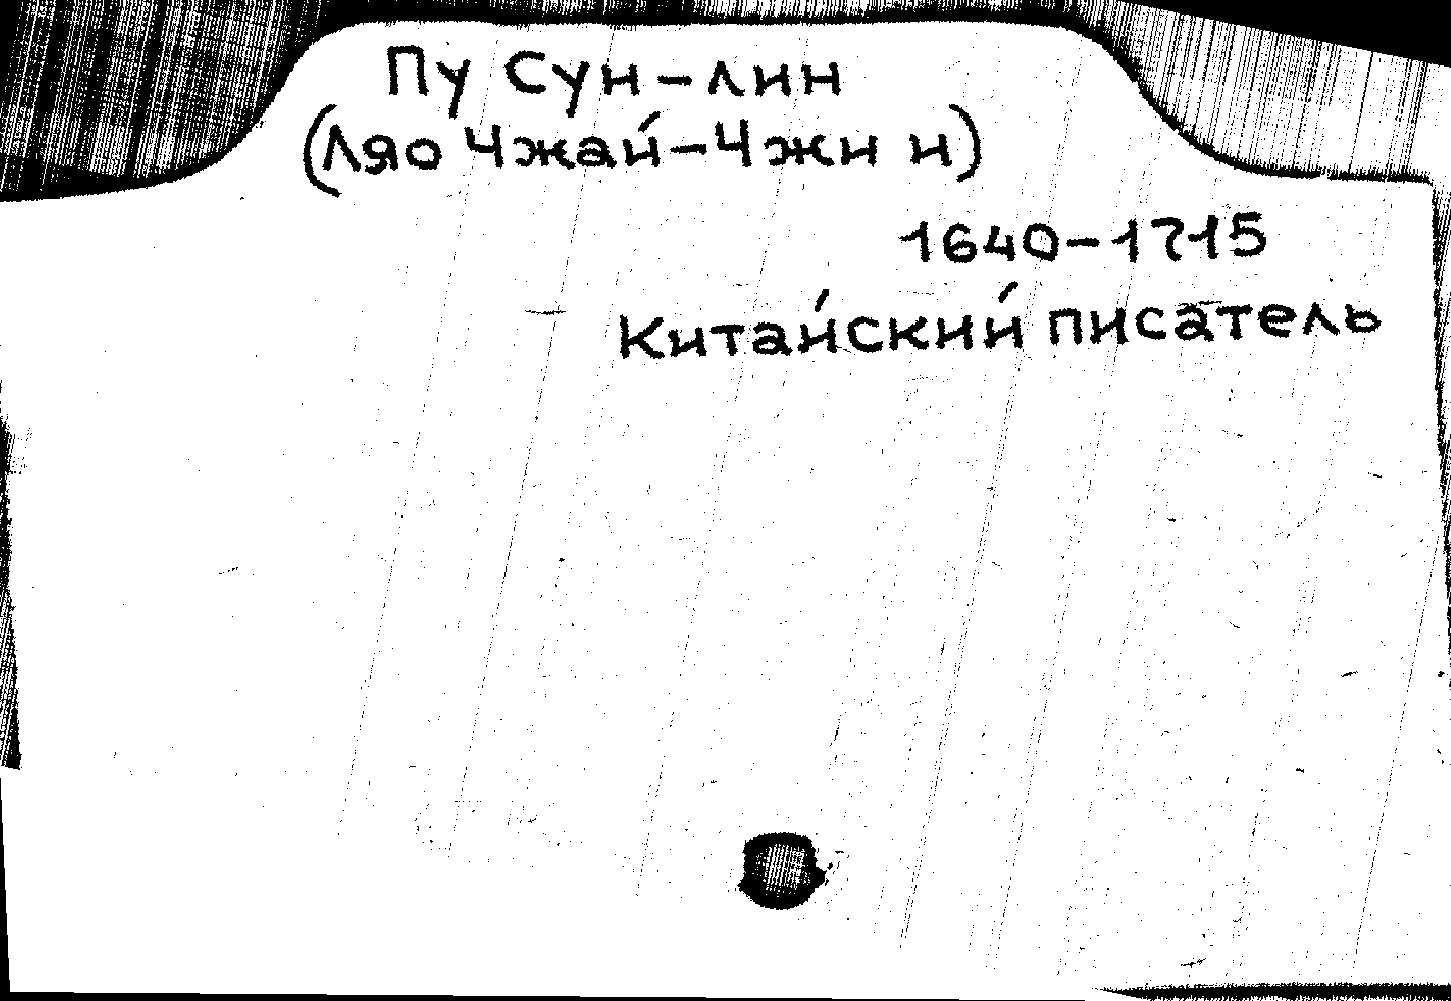 Пу Сун-лин
(Ляо Чжай-Чжи и)
1640-1715
Китайский писатель